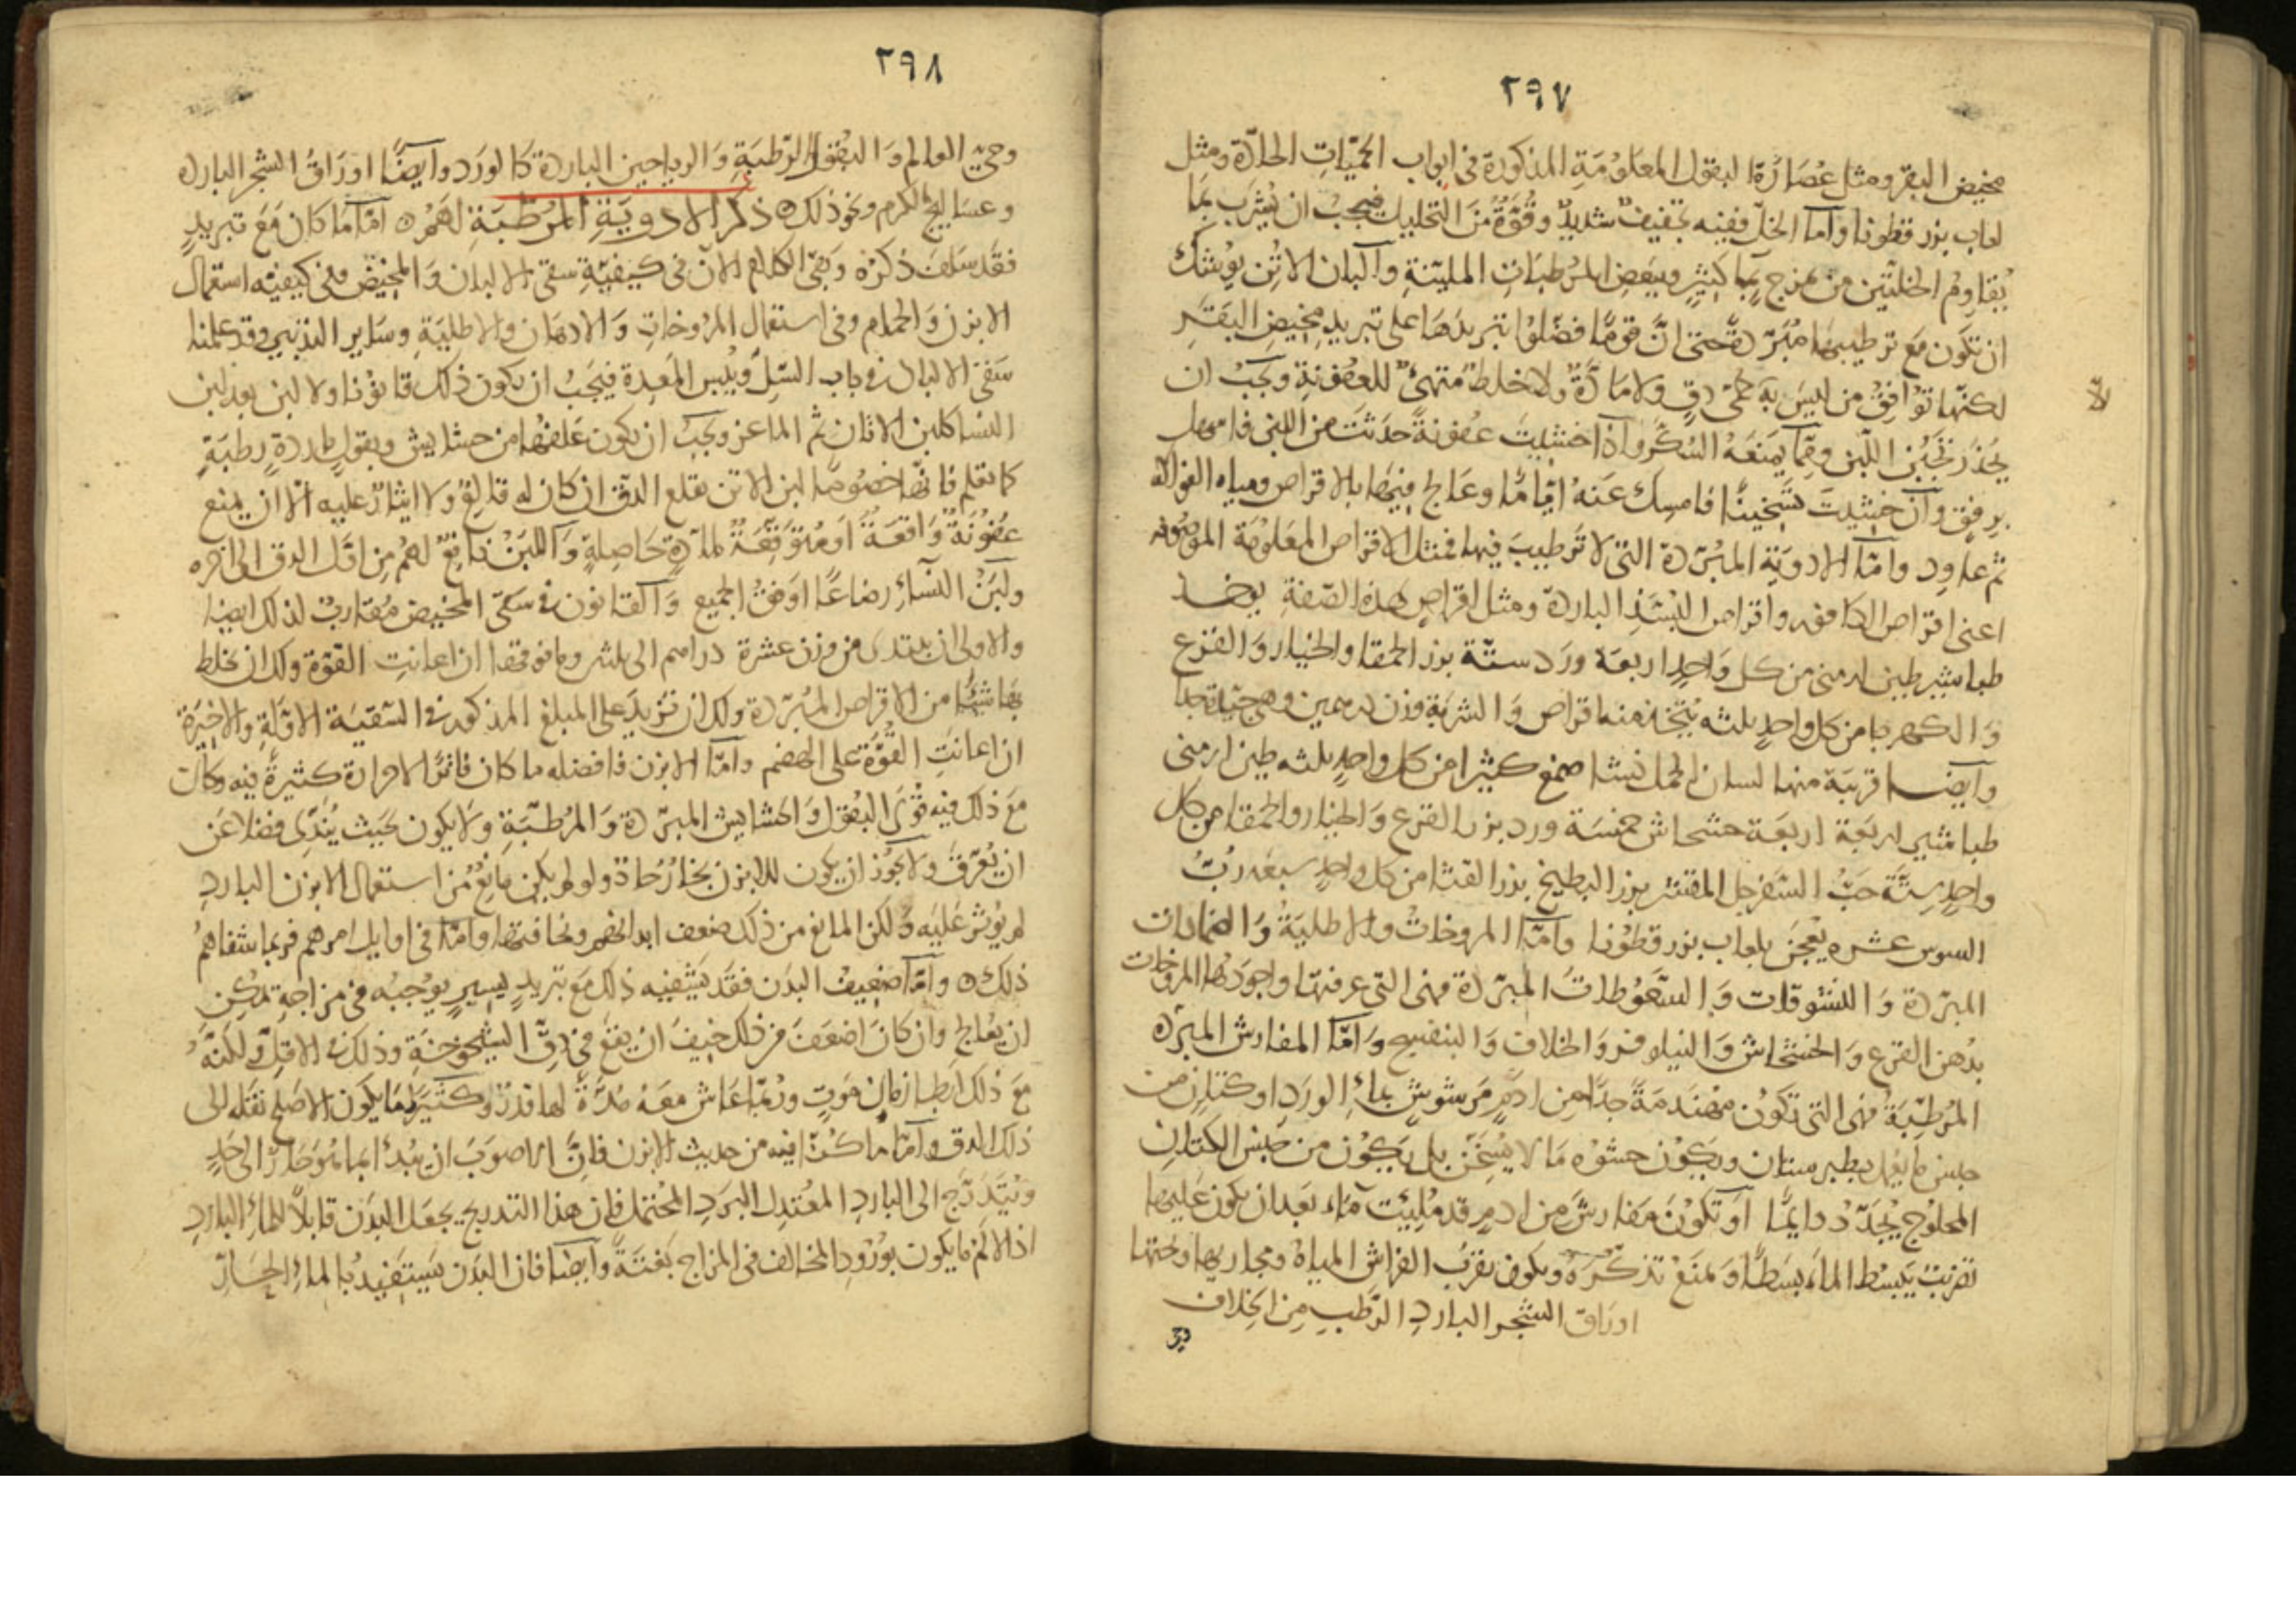 ٢٩٧
مخيض البقر ومثل عُصَارَة البقول المعلومَةِ المذكورة فى ابواب الحمّيَاتِ الحارّة ومثل
لعاب بزر قطونا وامّا الخلّ ففيه تجفيف شديدٌ وقُوّةٌ منَ التحليل فيجبُ ان يُشرَب بمَا
يُقاوِمُ الخلّتَين من مزج بمَا كثيرٍ وببعض المرُطبَات المليّنةِ وآلبان الاتُن يُوشك
ان تكون مَع ترطيبهَا مُبَرّدةً حتى انَّ قومًا فضّلوُا تبريدَهَا على تبريد مخيض البَقَر
لكنّها تُوَافِقُ من ليسَ به حُمّى دقٍ ولا مَادّةٌ ولا خلطٌ متهيئٌ للعفُونةِ ويجبُ ان
لا
يُحذر تجبُّن اللّبن وممّا يَمنعَهُ السُكّر واذا خشيتَ عفونةً حدَثتَ من اللبن فامهل
برفقٍ وآن خشيت تسَخينًا فامسِك عَنهُ ايَّامًا وعَالج فيهَا بالاقراص ومياه الفواكه
ثم عاوِد وامّا الادوَيَة المبُرّدة التى لا تَرطيبَ فيها فمثل الاقراص المعَلومَة الموصُوفه
اعنى اقراص الكافور واقراص البُسّذ الباردة ومثل اقراصٍ بهذه الصّفةِ يوخــذ
طباشير طين ارمنى من كل وَاحدٍ اربعَة ورَد ستّة بزر الحمقا والخيار وَالقَرع
وَالكهربا من كل واحدٍ ثلثه يُتّخذ منه اقراص وَالشربَة وزن درهمين وهى جيّدة جدّا
وَايضًـا قريبَة منها لسان الحمل نشا صمغ كثيرا من كل واحدٍ ثلثه طين ارمنى
طباشير اربعَة اربعَة خشخاش خمسَة ورد بزر القرع وَالخيار والحمقا من كل
واحدٍ سِتّة حَبّ السّفرجل المقشر بزر البطيخ بزر القثا من كل واحدٍ سبعَه رُبّ
السوس عشره يعُجَن بلعاب بزر قطوُنا وآمّا المروخاتُ والاطليَةُ وَالضمادات
المبّردة وَالنشوقات وَالسَّعوُطاتُ المبرّدة فهى التى عرفتها واجوَدُها المروخات
بدُهن القرع وَالخشخاش وَالنيلوفر وَالخلاف وَالبنفسج وَامّا المفارش المبرّده
المرُطِّبَة فهى التى تكوُن مُهَندَمَةً جدًّا من ادمٍ مَرشوشٍ بمآء الورَد او كتّانٍ من
جنس ما يعُمل بطبرستان ويكوُن حشوُه مَا لا يسُخّن بل يَكوُن من جنس الكتان
المحلوُج يُجَدّدُ دايمًا آو تكوُن مَفارشَ من ادمٍ قد مُلِيَت مَاء بَعدان يكون عَليهَا
تضريب يَبسُط الماء بسطًا وَيمَنعُ تذكّرَهُ ويكون بقرُب الفراش المياهُ ومجاريهَا وتحتها
اورَاق الشجر الباردِ الرّطبِ مِن الخِلاف

٢٩٨
وحىّ العالم وَالبقوُل الرّطبَةِ وَالرياحين الباردة كَالورَد وآيضًا اورَاقُ الشجر البارد
وعسَاليجُ الكرم ونحَو ذلك ذكر الادويَةِ المرُطّبَةِ لهَمُ امّا مَا كان مَعَ تبريدٍ
فقَد سَلف ذكرُه وَبقىَ الكلام الآن فى كيفيّةِ سقى الالبان وَالمخيض وفى كيفيّه استعمال
الابزن وَالحمام وفى استعمال المرُوخاتِ وَالادهان والاطليَةِ وسَاير التدبير وقد علمنا
سَقىَ الالبان فى باب السّلِّ وَيُبس المَعِدة فيَجبُ ان يكون ذلك قانوُنا ولا لبن بعد لبن
النسا كلبن الاتان ثم الماعز ويجبُ ان يكون عَلفهُا من حشايش وبقولٍ باردةٍ رطبَةٍ
كما تعلم فانهّا خصُوصًا لبن الاتن يقلع الدق ان كان له قالعٌ ولا ايثارٌ عليه الّا ان يمنع
عفُوُنَةٌ وَاقعَةٌ اوَ مُتوَقّعَةٌ لمادّةٍ حَاصِلةٍ وَاللبَنُ نافعٌ لهمُ مِن اوّل الدق الى اخره
ولَبَنُ النسَآءِ رضاعًا اوَفقُ الجميع وَالقانون فى سَقى المخيض مُقاربٌ لذلك ايضا
والاولى ان يبتدى من وزن عشرة دراهم الى ثلثين وما فوقهَا ان اعانتِ القوّة ولك ان تخلط
بهَا شيًا من الاقراص المُبرّدة ولك ان تزيدَ على المبلغ المذكور فى السّقيَة الاوّلةِ والاخيرَةِ
ان اعانتِ القُوَّةُ على الهضم وامّا الابزن فافضله ما كان فاترًا لا حرارة كثيرةً فيه وكان
مَعَ ذلك فيه قُوَى البُقول وَالحشايش المبرّدة وَالمرُطّبَةِ وَلا يكون بحَيث يُندّى فضلا عَن
ان يُعَرّقَ ولا يجوُز ان يكون للابزن بخارٌ حَارّ ولو لم يكن مانِعٌ من استعمال الابزن الباردِ
لم يؤثر عَليَه وَلكن المانع من ذلك ضعف ابدانهم ونحافتها وامّا فى اوايل امرهم فربما شفاهمُ
ذلك وامّا ضعيف البدَن فقَد يَشفيَه ذلك مَع تبريدٍ يسيرٍ يوُجبُه فى مزاجهِ يمُكن
ان يعُالج وَان كانَ اضعَفَ من ذلك خيفَ ان يقعَ فى دِقّ الشيخوخَةِ وذلك فى الاقلّ وَلكنّهُ
مَعَ ذلك ابَطا زمان مَوتٍ ورُبّما عَاش معَهُ مُدّةً لها قدرٌ وكثيرًا مَا يكوُن الاصَلح نقَله الى
ذلك الدق وامّا مَا كُنّا فيه من حديث الابزن فانّ الاصوَبَ ان يُبدأ بمَا هُوَ حَارّ الى حدٍّ
وَيُتَدَرّج الى الباردِ المعُتدِل البرَد المحُتمل فان هذا التدريج يجعَل البدَن قابلاً للمآء البارد
اذ الالم ما يكون بوُرُودِ المخالف فى المزاج بَغتَةً وَايضًا فان البدَن يَستَفيدُ بالمآءِ الحَارّ